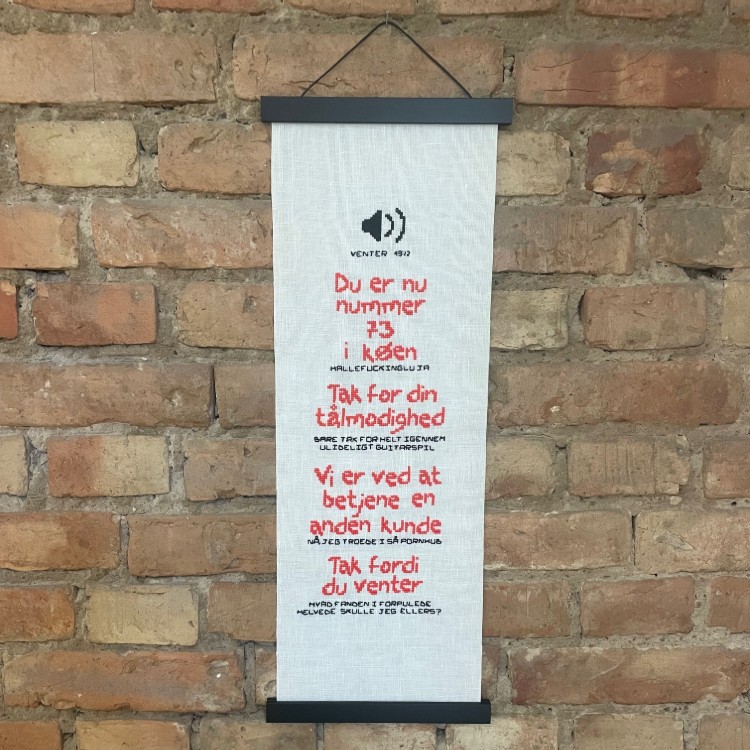 VENTER 1812
Du er nu
nummer
73
i køen
HALLEFUCKINGLUJA
Tak for din
tålmodighed
BARE TAK FOR HELT IGENNEM
ULIDELIGT GUITARSPIL
Vi er ved at
betjene en
anden kunde
NÅ JEG TROEDE I SÅ PORNHUB
Tak fordi
du venter
HVAD FANDEN I FORPULEDE
HELVEDE SKULLE JEG ELLERS?